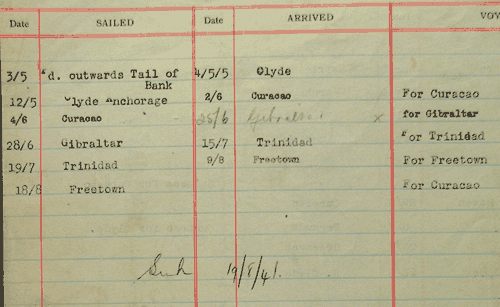 Date SAILED Date ARRIVED VOY
3/5 'd. outwards Tail of Bank 4/5/5 Clyde
12/5 Clyde Anchorage 2/6 Curacao For Curacao
4/6 Curacao 25/6 Gibraltar x for Gibraltar
28/6 Gibraltar 15/7 Trinidad For Trinidad
19/7 Trinidad 9/8 Freetown For Freetown
18/8 Freetown For Curacao
Sunk 19/8/41.